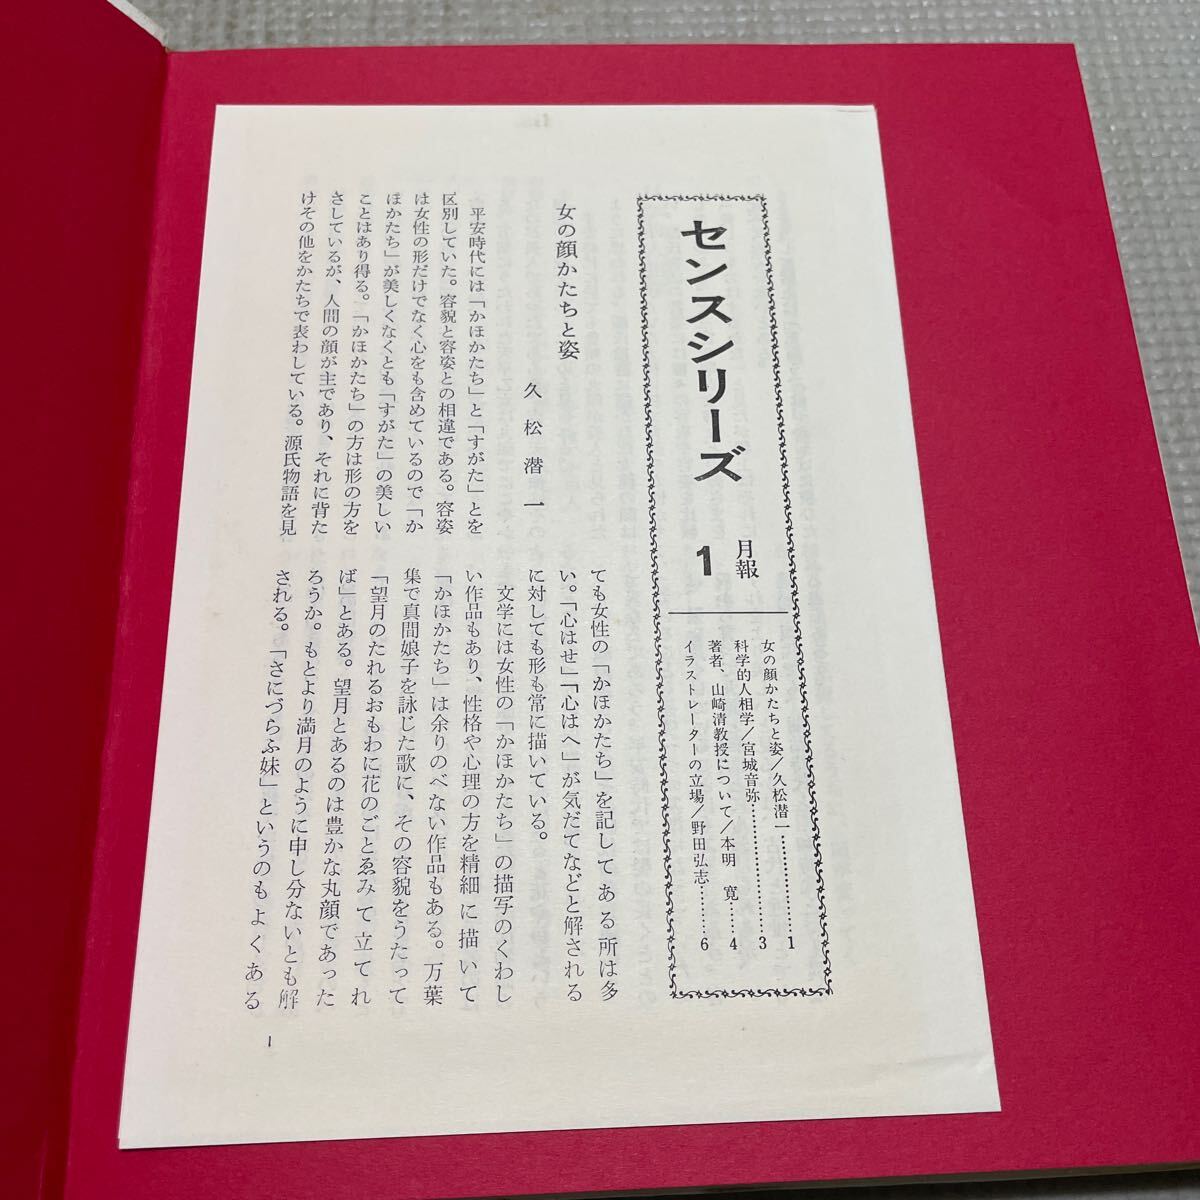 センスシリーズ
月報
1
女の顔かたちと姿／久松潜一…………1
科学的人相学／宮城音弥…………3
著者、山崎清教授について／本明　寛……4
イラストレーターの立場／野田弘志………6
女の顔かたちと姿
久松潜一
平安時代には「かほかたち」と「すがた」とを
区別していた。容貌と容姿との相違である。容姿
は女性の形だけでなく心をも含めているので「か
ほかたち」が美しくなくとも「すがた」の美しい
ことはあり得る。「かほかたち」の方は形の方を
さしているが、人間の顔が主であり、それに背た
けその他をかたちで表わしている。源氏物語を見
ても女性の「かほかたち」を記してある所は多
い。「心はせ」「心はへ」が気だてなどと解される
に対しても形も常に描いている。
文学には女性の「かほかたち」の描写のくわし
い作品もあり、性格や心理の方を精細に描いて
「かほかたち」は余りのべない作品もある。万葉
集で真間娘子を詠じた歌に、その容貌をうたって
「望月のたれるおもわに花のごとゑみて立てれ
ば」とある。望月とあるのは豊かな丸顔であった
ろうか。もとより満月のように申し分ないとも解
される。「さにづらふ妹」というのもよくある
1